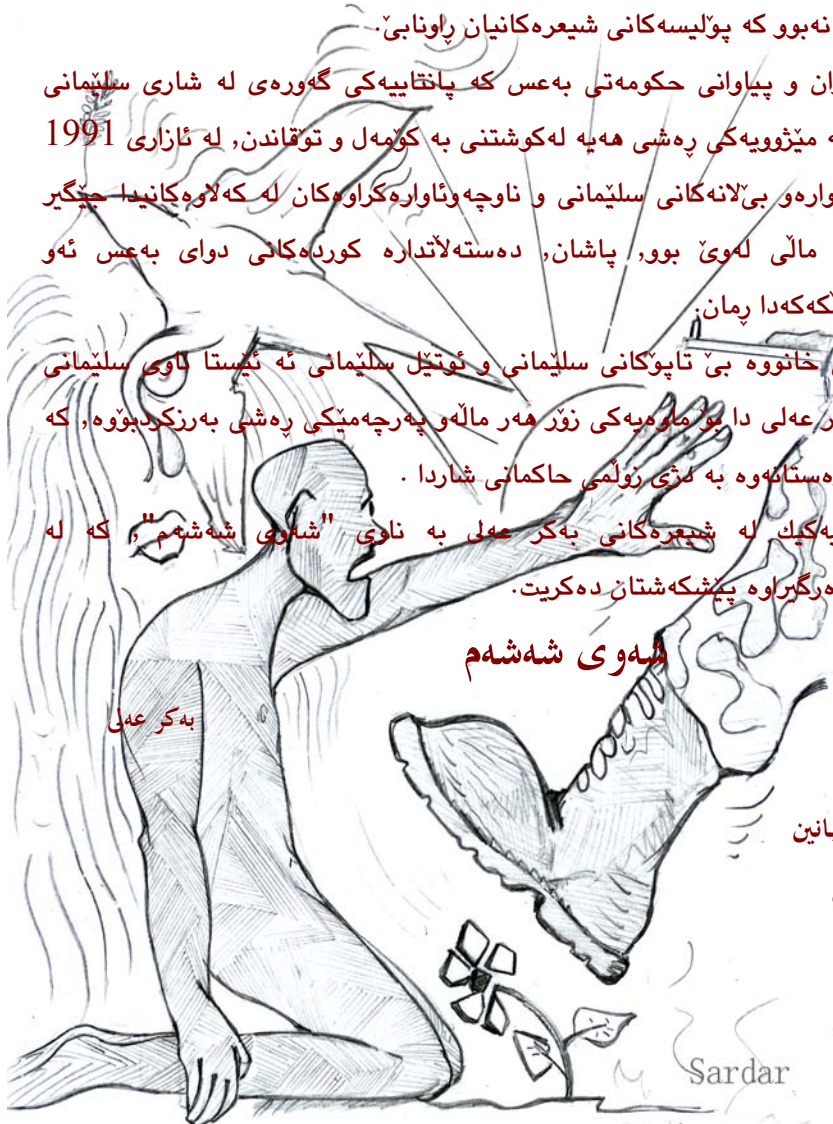 نەبوو کە پۆلیسەکانی شیعرەکانیان ڕاونابێ.
ران و پیاوانی حکومەتی بەعس کە پانتاییەکی گەورەی لە شاری سلێمانی
ە مێژوویەکی ڕەشی هەیە لەکوشتنی بە کۆمەل و تۆقاندن, لە ئازاری 1991
وارەو بێلانەکانی سلێمانی و ناوچەوئاوارەکراوەکان لە کەلاوەکانیدا جێگیر
ماڵی لەوێ بوو, پاشان, دەستەڵاتدارە کوردەکانی دوای بەعس ئەو
ێکەکەدا ڕمان.
خانووە بێ تاپۆکانی سلێمانی و ئوتێل سلێمانی ئە ئێستا ناوی سلێمانی
ر عەلی دا بۆ ماوەیەکی زۆر هەر ماڵەو پەرچەمێکی ڕەشی بەرزکردبۆوە, کە
ەستانەوە بە دژی زوڵمی حاکمانی شاردا .
یەکیك لە شیعرەکانی بەکر عەلی بە ناوی "شەوی شەشەم", کە لە
ەرگیراوە پێشکەشتان دەکریت.
شەوی شەشەم
بەکر عەلی
یانین
Sardar